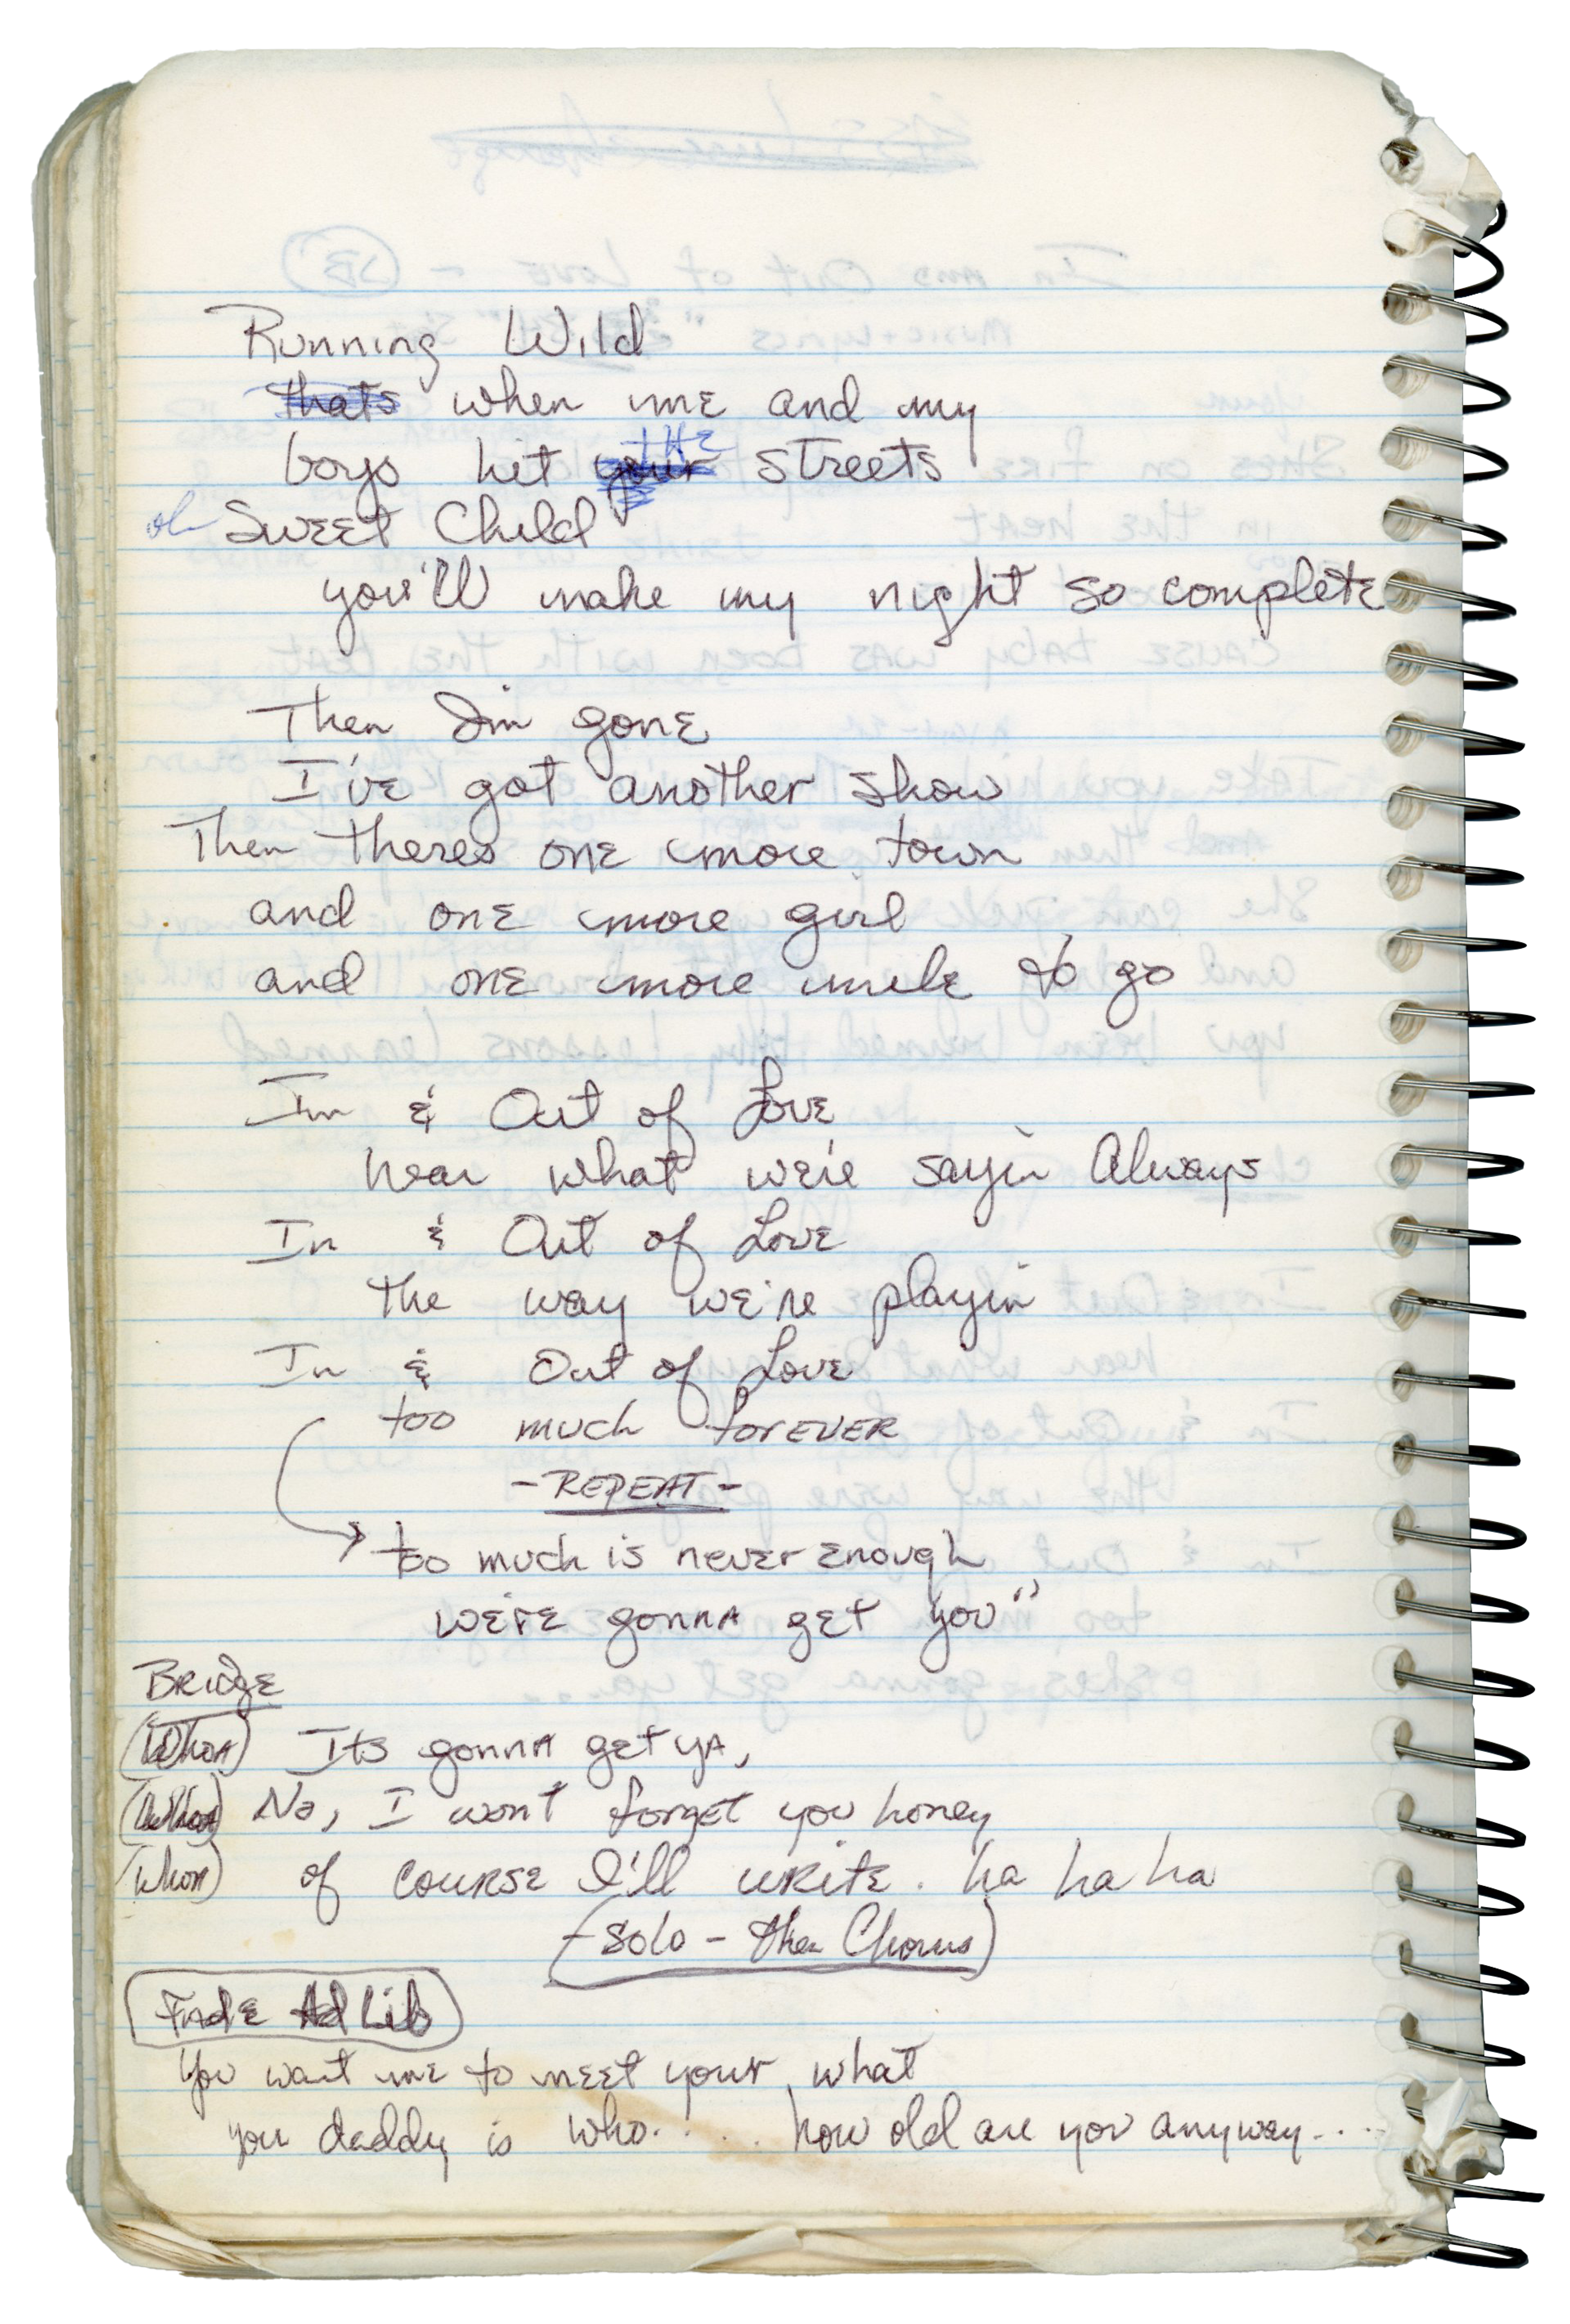 Running Wild
thats when me and my
boys hit your THE streets
oh Sweet Child
you'll make my night so complete
Then I'm gone
I've got another show
Then theres one more town
and one more girl
and one more mile to go
In & Out of Love
hear what we're sayin Always
In & Out of Love
the way we're playin
In & Out of Love
too much forever
- REPEAT -
too much is never enough
we're gonna get you"
Bridge
(Whoa) Its gonna get ya,
No, I wont forget you honey
(Whoa) of course I'll write. ha ha ha
(Solo - then Chorus)
Fade Ad Lib
You want me to meet your what
you daddy is who..... how old are you anyway....